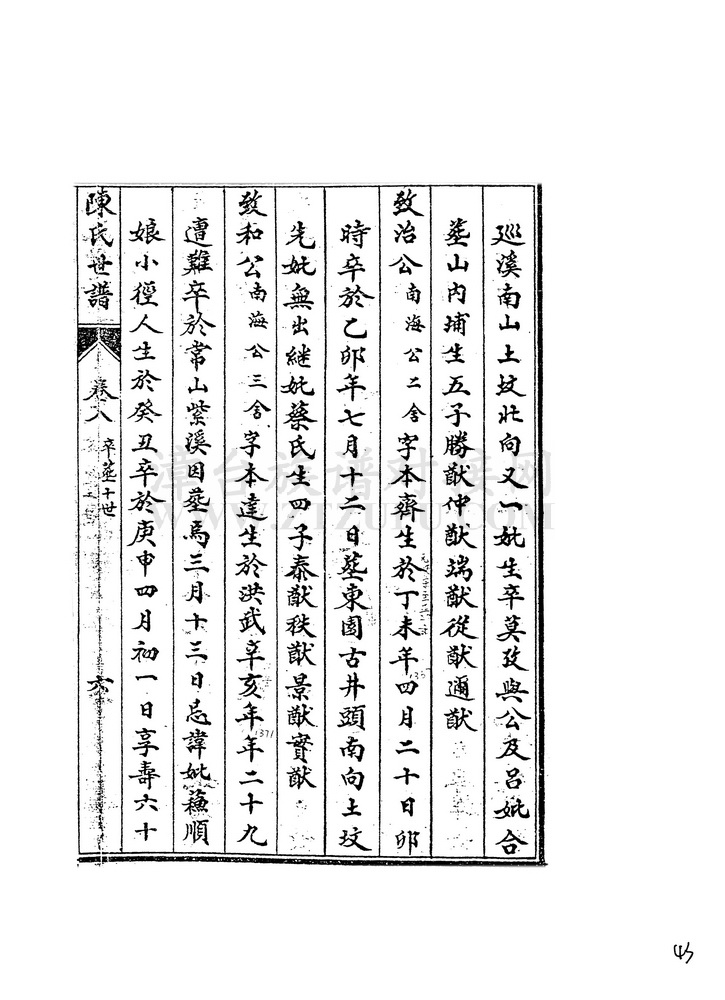 廵溪南山土坟北向又一妣生卒莫攷與公及呂妣合
塟山內埔生五子勝猷仲猷端猷從猷邇猷
致治公南海公二舍字本齊生於丁未年四月二十日卯
時卒於乙卯年七月十二日塟東園古井頭南向土坟
先妣無出継妣蔡氏生四子泰猷秩猷景猷實猷
致和公南海公三舍字本達生於洪武辛亥年年二十九
1371
遭難卒於常山紫溪因塟焉三月十三日忌諱妣蘓順
娘小徑人生於癸丑卒於庚申四月初一日享壽六十
陳氏世譜
卷八
卒塟十世
六
漳台族谱对接网
WWW.ZTZUPU.COM
45